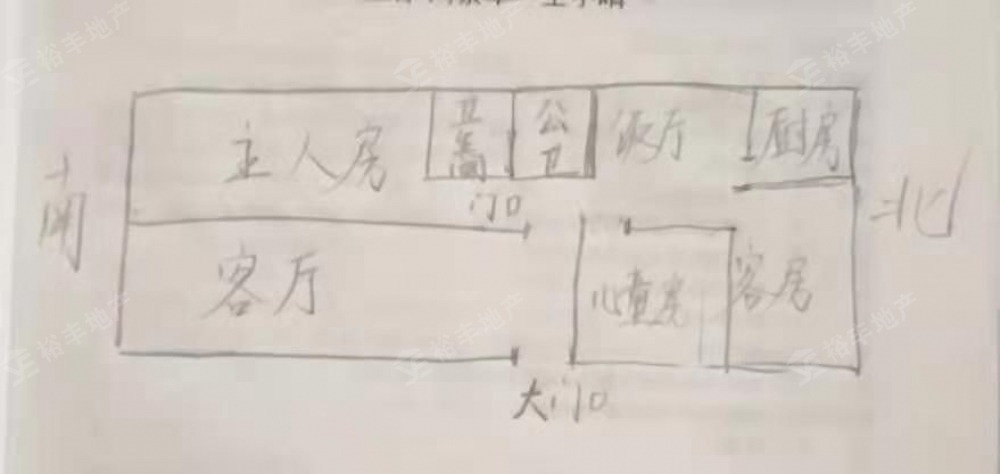 裕丰地产
裕丰地产
裕丰地产
主人房
卫
公卫
饭厅
厨房
门口
南
北
客厅
儿童房
客房
裕丰地产
裕丰地产
裕丰地产
大门口